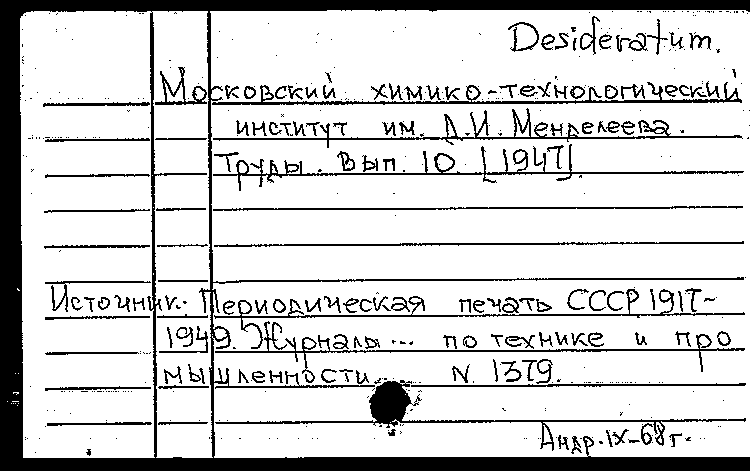 Desideratum.
Московский химико-технологический
институт им. Д.И. Менделеева.
Труды. Вып. 10. [1947].
Источник: Периодическая печать СССР 1917-
1949. Журналы... по технике и про
мышленности. N 1379.
Андр. IX-68г.